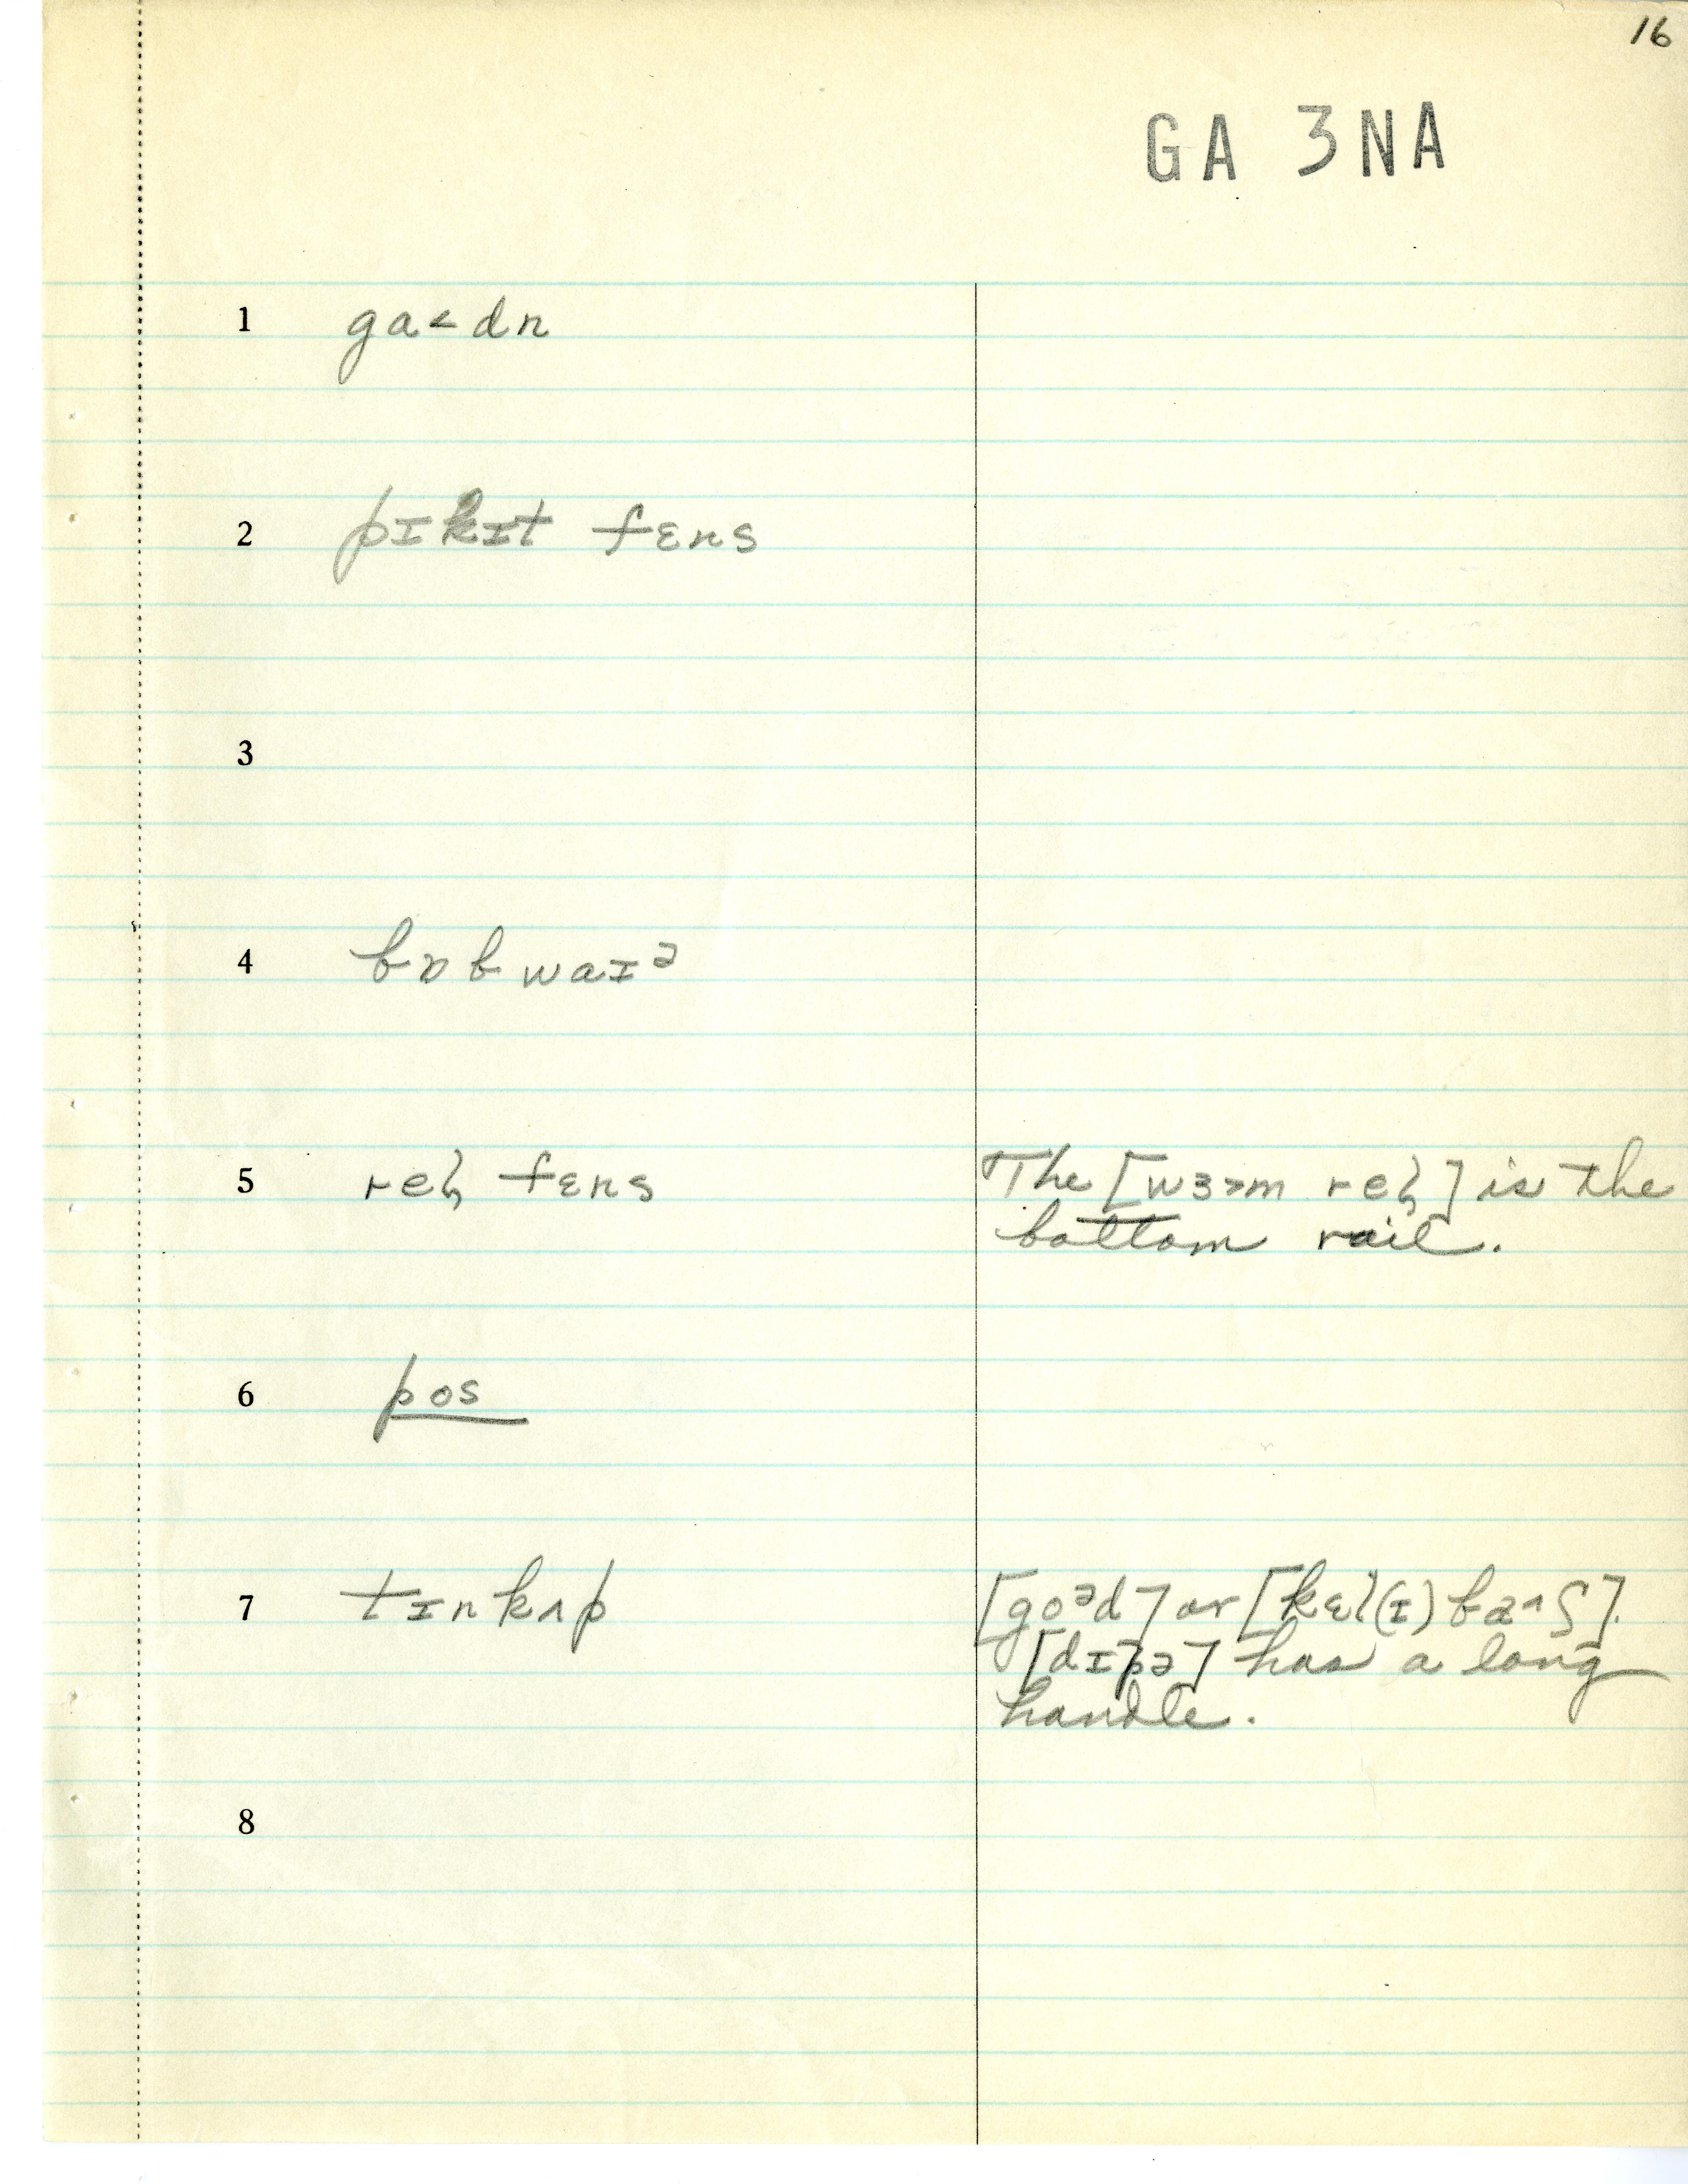 16
GA 3NA
1 ga˂dn
2 pɪkɪt fɛns
3
4 bɒbwaɪᵊ
5 reɫ fɛns The [wɜ˃m reɫ] is the
bottom rail.
6 pos
7 tɪnkʌp [goᵊd] or [kɛl(ɪ)baʃ].
[dɪpə] has a long
handle.
8